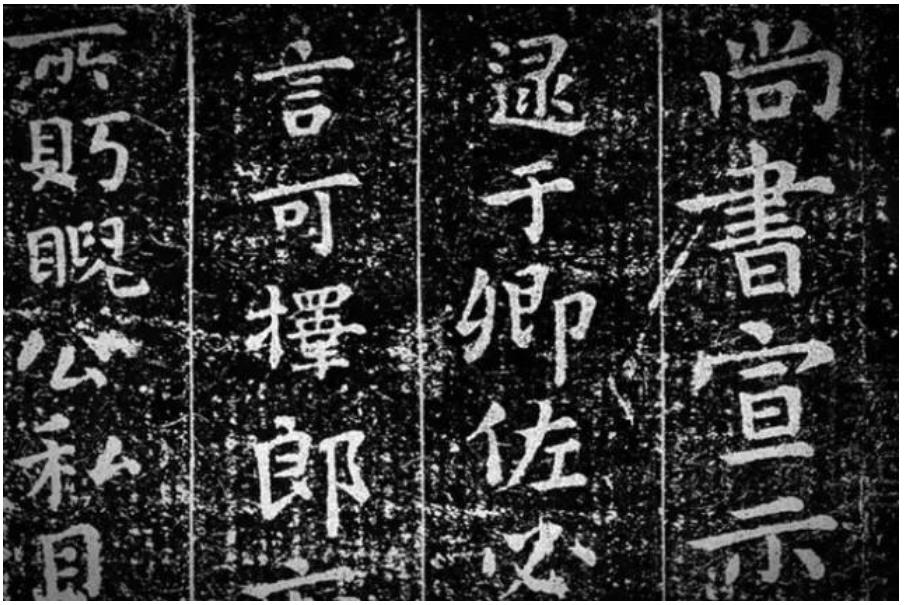 尚書宣示
逮于卿佐必
言可擇郎
所眄睨公私見